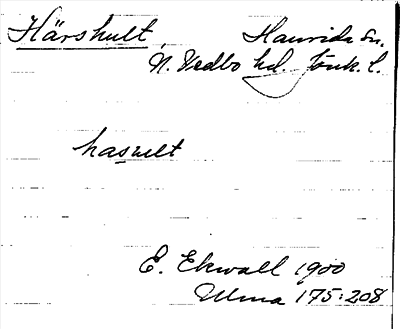 Härshult, Haurida sn.
N. Vedbo hd. Jönk. l.
hasult
E. Ekwall 1900
Ulma 175:208